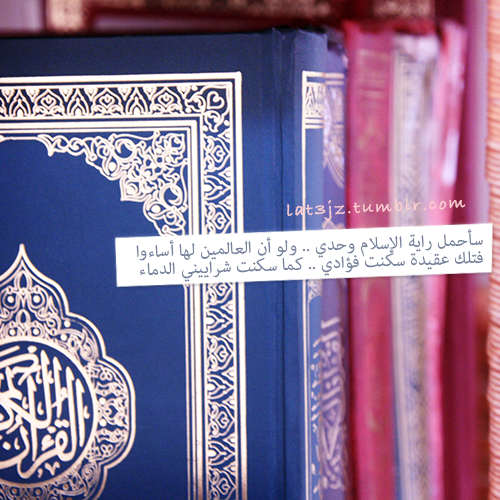 lat3jz.tumblr.com
سأحمل راية الإسلام وحدي .. ولو أن العالمين لها أساءوا
فتلك عقيدة سكنت فؤادي .. كما سكنت شراييني الدماء
القرآن الكريم